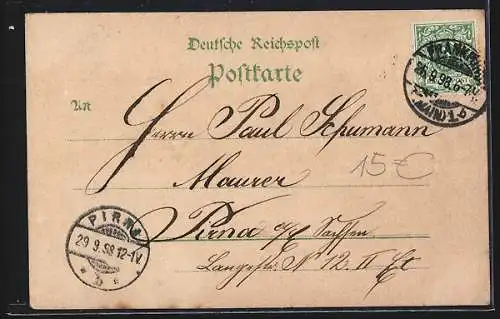 Deutsche Reichspost
Postkarte
An
Herrn Paul Schumann
Maurer
15€
Pirna a/E Sachsen
Langestr. N 12 II Et
PIRNA
29 9.98 12-1V
* b *
FRANKFURT
9.98.6-7N
(MAIN) 1.